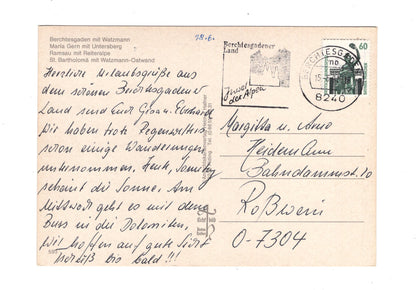 Berchtesgaden mit Watzmann
Maria Gern mit Untersberg
Ramsau mit Reiteralpe
St. Bartholomä mit Watzmann-Ostwand
Herzliche Urlaubsgrüße aus
dem schönen Berchtesgadener
Land sind Euch
Wir haben trotz Regenwetters
schon einige Wanderungen
unternommen. Heute, Sonntag
schaut die Sonne. Am
Mittwoch geht es mit dem
Bus in die Dolomiten.
Wir hoffen auf gute Sicht
bis bald!!!
Berchtesgadener
Land
der Alpen
BERCHTESGADEN
8240
60
Margitta u. Arno
Heidemann
Bahndamm 10
Roßwein
O-7304